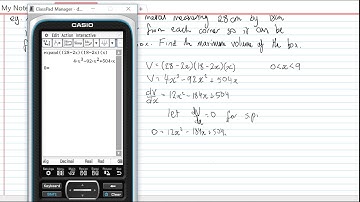 My Not
ClassPad Manager - d...
CASIO
Edit Action Interactive
expand((28-2x)(18-2x)(x)
4·x³-92·x²+504·x
Alg Decimal Real Rad
eg. metal measuring 28cm by 18cm
from each corner so it can be
box. Find the maximum volume of the box.
V=(28-2x)(18-2x)(x) 0<x<9
V=4x³-92x²+504x
dV/dx=12x²-184x+504
let dV/dx=0 for s.p.
0=12x²-184x+504